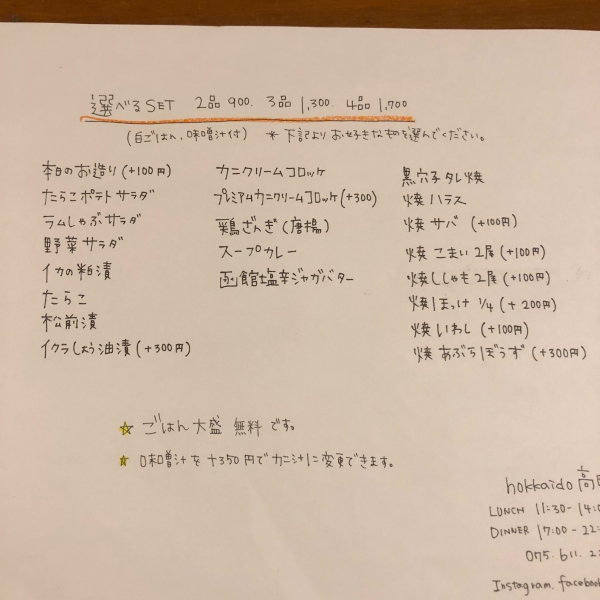 選べるSET 2品 900. 3品 1,300. 4品 1,700
(白ごはん、味噌汁付) * 下記よりお好きなものを選んでください。
本日のお造り (+100円)
たらこポテトサラダ
ラムしゃぶサラダ
野菜サラダ
イカの粕漬
たらこ
松前漬
イクラしょう油漬 (+300円)
カニクリームコロッケ
プレミアムカニクリームコロッケ (+300)
鶏ざんぎ (唐揚)
スープカレー
函館塩辛ジャガバター
黒穴子タレ焼
焼ハラス
焼サバ (+100円)
焼こまい2尾 (+100円)
焼ししゃも2尾 (+100円)
焼ほっけ 1/4 (+200円)
焼いわし (+100円)
焼あぶらぼうず (+300円)
☆ ごはん大盛 無料です。
☆ 味噌汁を+350円でカニ汁に変更できます。
hokkaido 高
LUNCH 11:30-14:0
DINNER 17:00-22:
075.611.2
Instagram.facebook